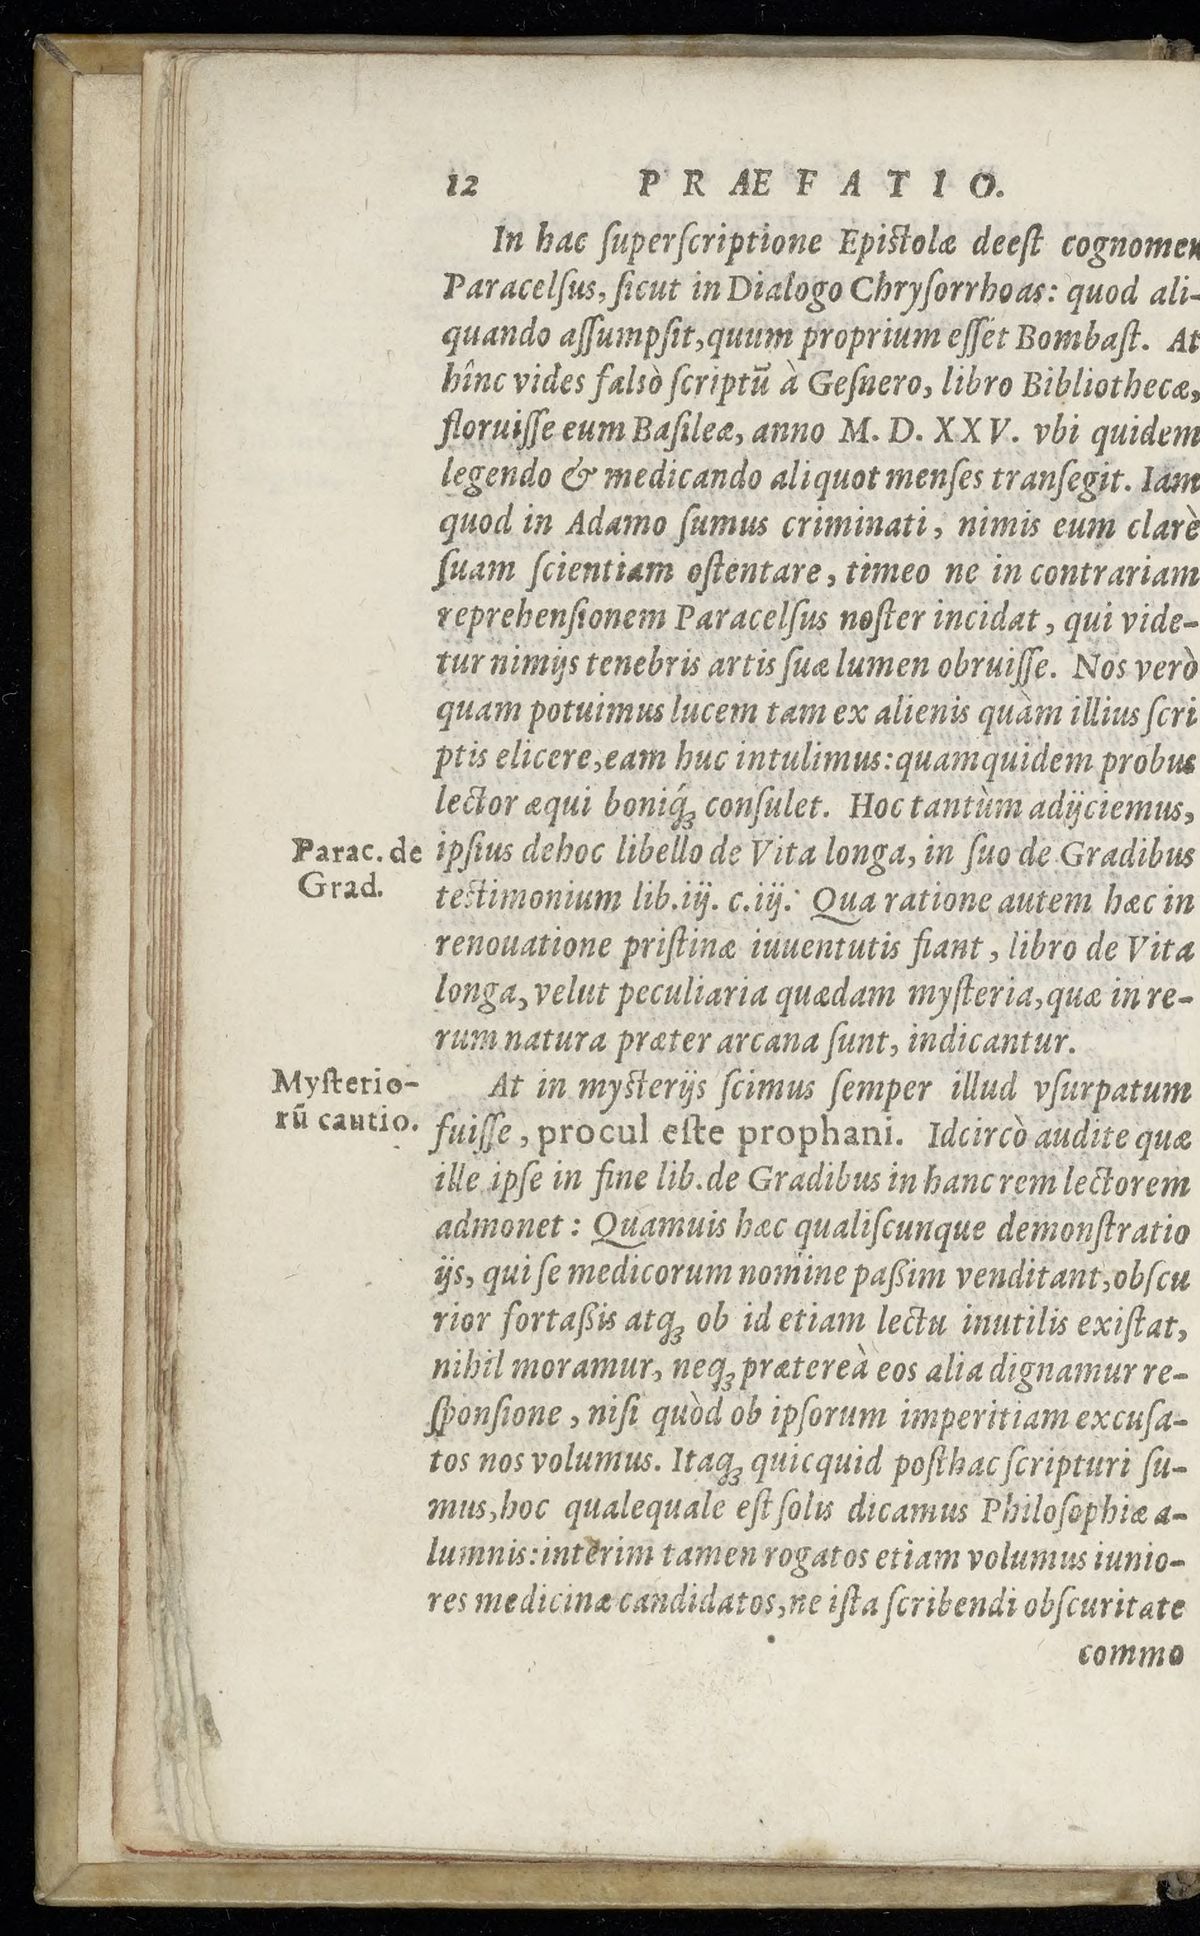 12 PRÆFATIO.
In hac ſuperſcriptione Epiſtolæ deeſt cognomen
Paracelſus, ſicut in Dialogo Chryſorrhoas: quod ali-
quando aſſumpſit, quum proprium eſſet Bombaſt. At
hînc vides falsò ſcriptū à Geſnero, libro Bibliothecæ,
floruiſſe eum Baſileæ, anno M. D. XXV. vbi quidem
legendo & medicando aliquot menſes tranſegit. Iam
quod in Adamo ſumus criminati, nimis eum clarè
ſuam ſcientiam oſtentare, timeo ne in contrariam
reprehenſionem Paracelſus noſter incidat, qui vide-
tur nimijs tenebris artis ſuæ lumen obruiſſe. Nos verò
quam potuimus lucem tam ex alienis quàm illius ſcri
ptis elicere, eam huc intulimus: quamquidem probus
lector æqui boniq́ꝫ conſulet. Hoc tantùm adijciemus,
Parac. de
Grad.
ipſius dehoc libello de Vita longa, in ſuo de Gradibus
teſtimonium lib.iij. c.iij. Qua ratione autem hæc in
renouatione priſtinæ iuuentutis fiant, libro de Vita
longa, velut peculiaria quædam myſteria, quæ in re-
rum natura præter arcana ſunt, indicantur.
Myſterio-
rū cautio.
At in myſterijs ſcimus ſemper illud vſurpatum
fuiſſe, procul eſte prophani. Idcircò audite quæ
ille ipſe in fine lib. de Gradibus in hanc rem lectorem
admonet: Quamuis hæc qualiſcunque demonſtratio
ijs, qui ſe medicorum nomine paßim venditant, obſcu
rior fortaßis atqꝫ ob id etiam lectu inutilis exiſtat,
nihil moramur, neqꝫ prætereà eos alia dignamur re-
ſponſione, niſi quòd ob ipſorum imperitiam excuſa-
tos nos volumus. Itaqꝫ quicquid poſthac ſcripturi ſu-
mus, hoc qualequale eſt ſolis dicamus Philoſophiæ a-
lumnis: interim tamen rogatos etiam volumus iunio-
res medicinæ candidatos, ne iſta ſcribendi obſcuritate
commo